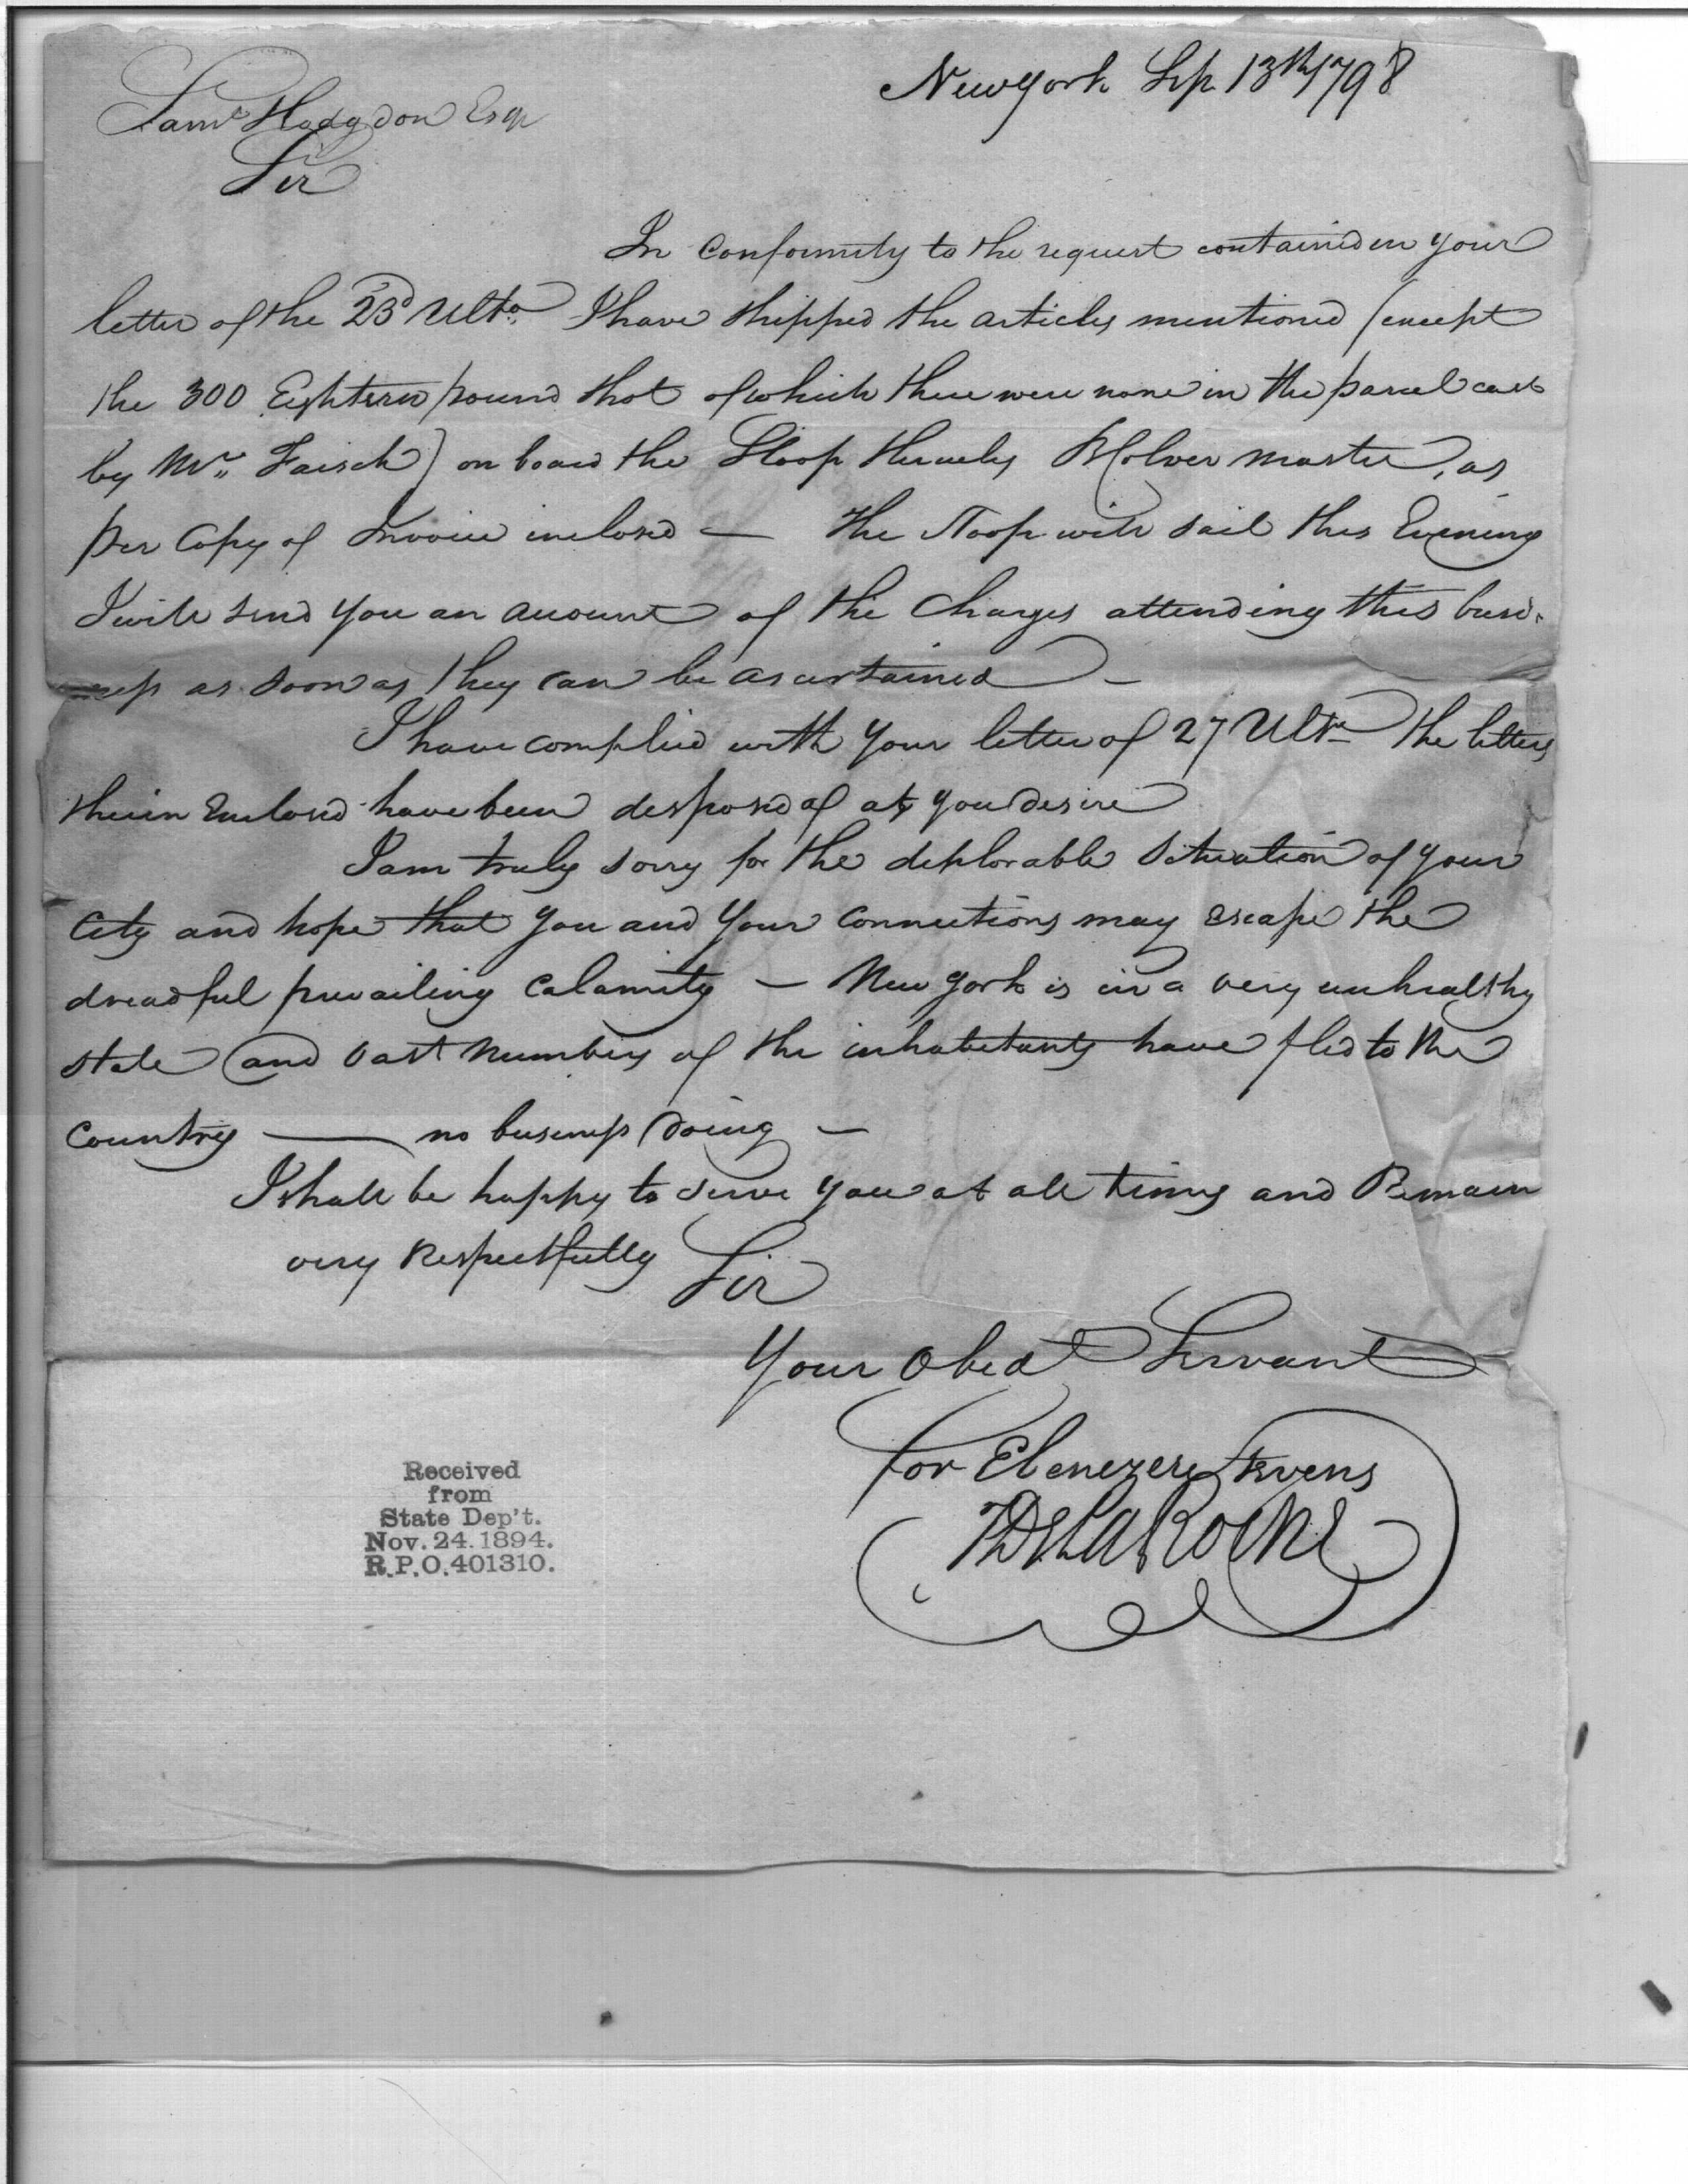 New york Sep 13th 1798
Saml Hodgdon Esqr
Sir
In Conformity to the request contained in your
letter of the 23d Ulto. I have shipped the articles mentioned (except
the 300 Eighteen pound shot of which there were none in the parcel cast
by Mr. Faisch) on board the Sloop Hercules master, as
per Copy of Invoice inclosed — The Sloop will sail this Evening
I will send you an account of the Charges attending this busi-
-ness as soon as they can be ascertained —
I have complied with your letter of 27 Ulto the letters
therein Enclosed have been disposed of as you desire
I am truly sorry for the deplorable Situation of your
City and hope that you and your Connections may escape the
dreadful prevailing Calamity — New york is in a very unhealthy
state and vast numbers of the inhabitants have fled to the
Country — no business doing —
I shall be happy to serve you at all times and Remain
very Respectfully Sir
Your Obedt Servant
for Ebenezer Stevens
DeLaRoche
Received
from
State Dep't.
Nov. 24. 1894.
R.P.O. 401310.